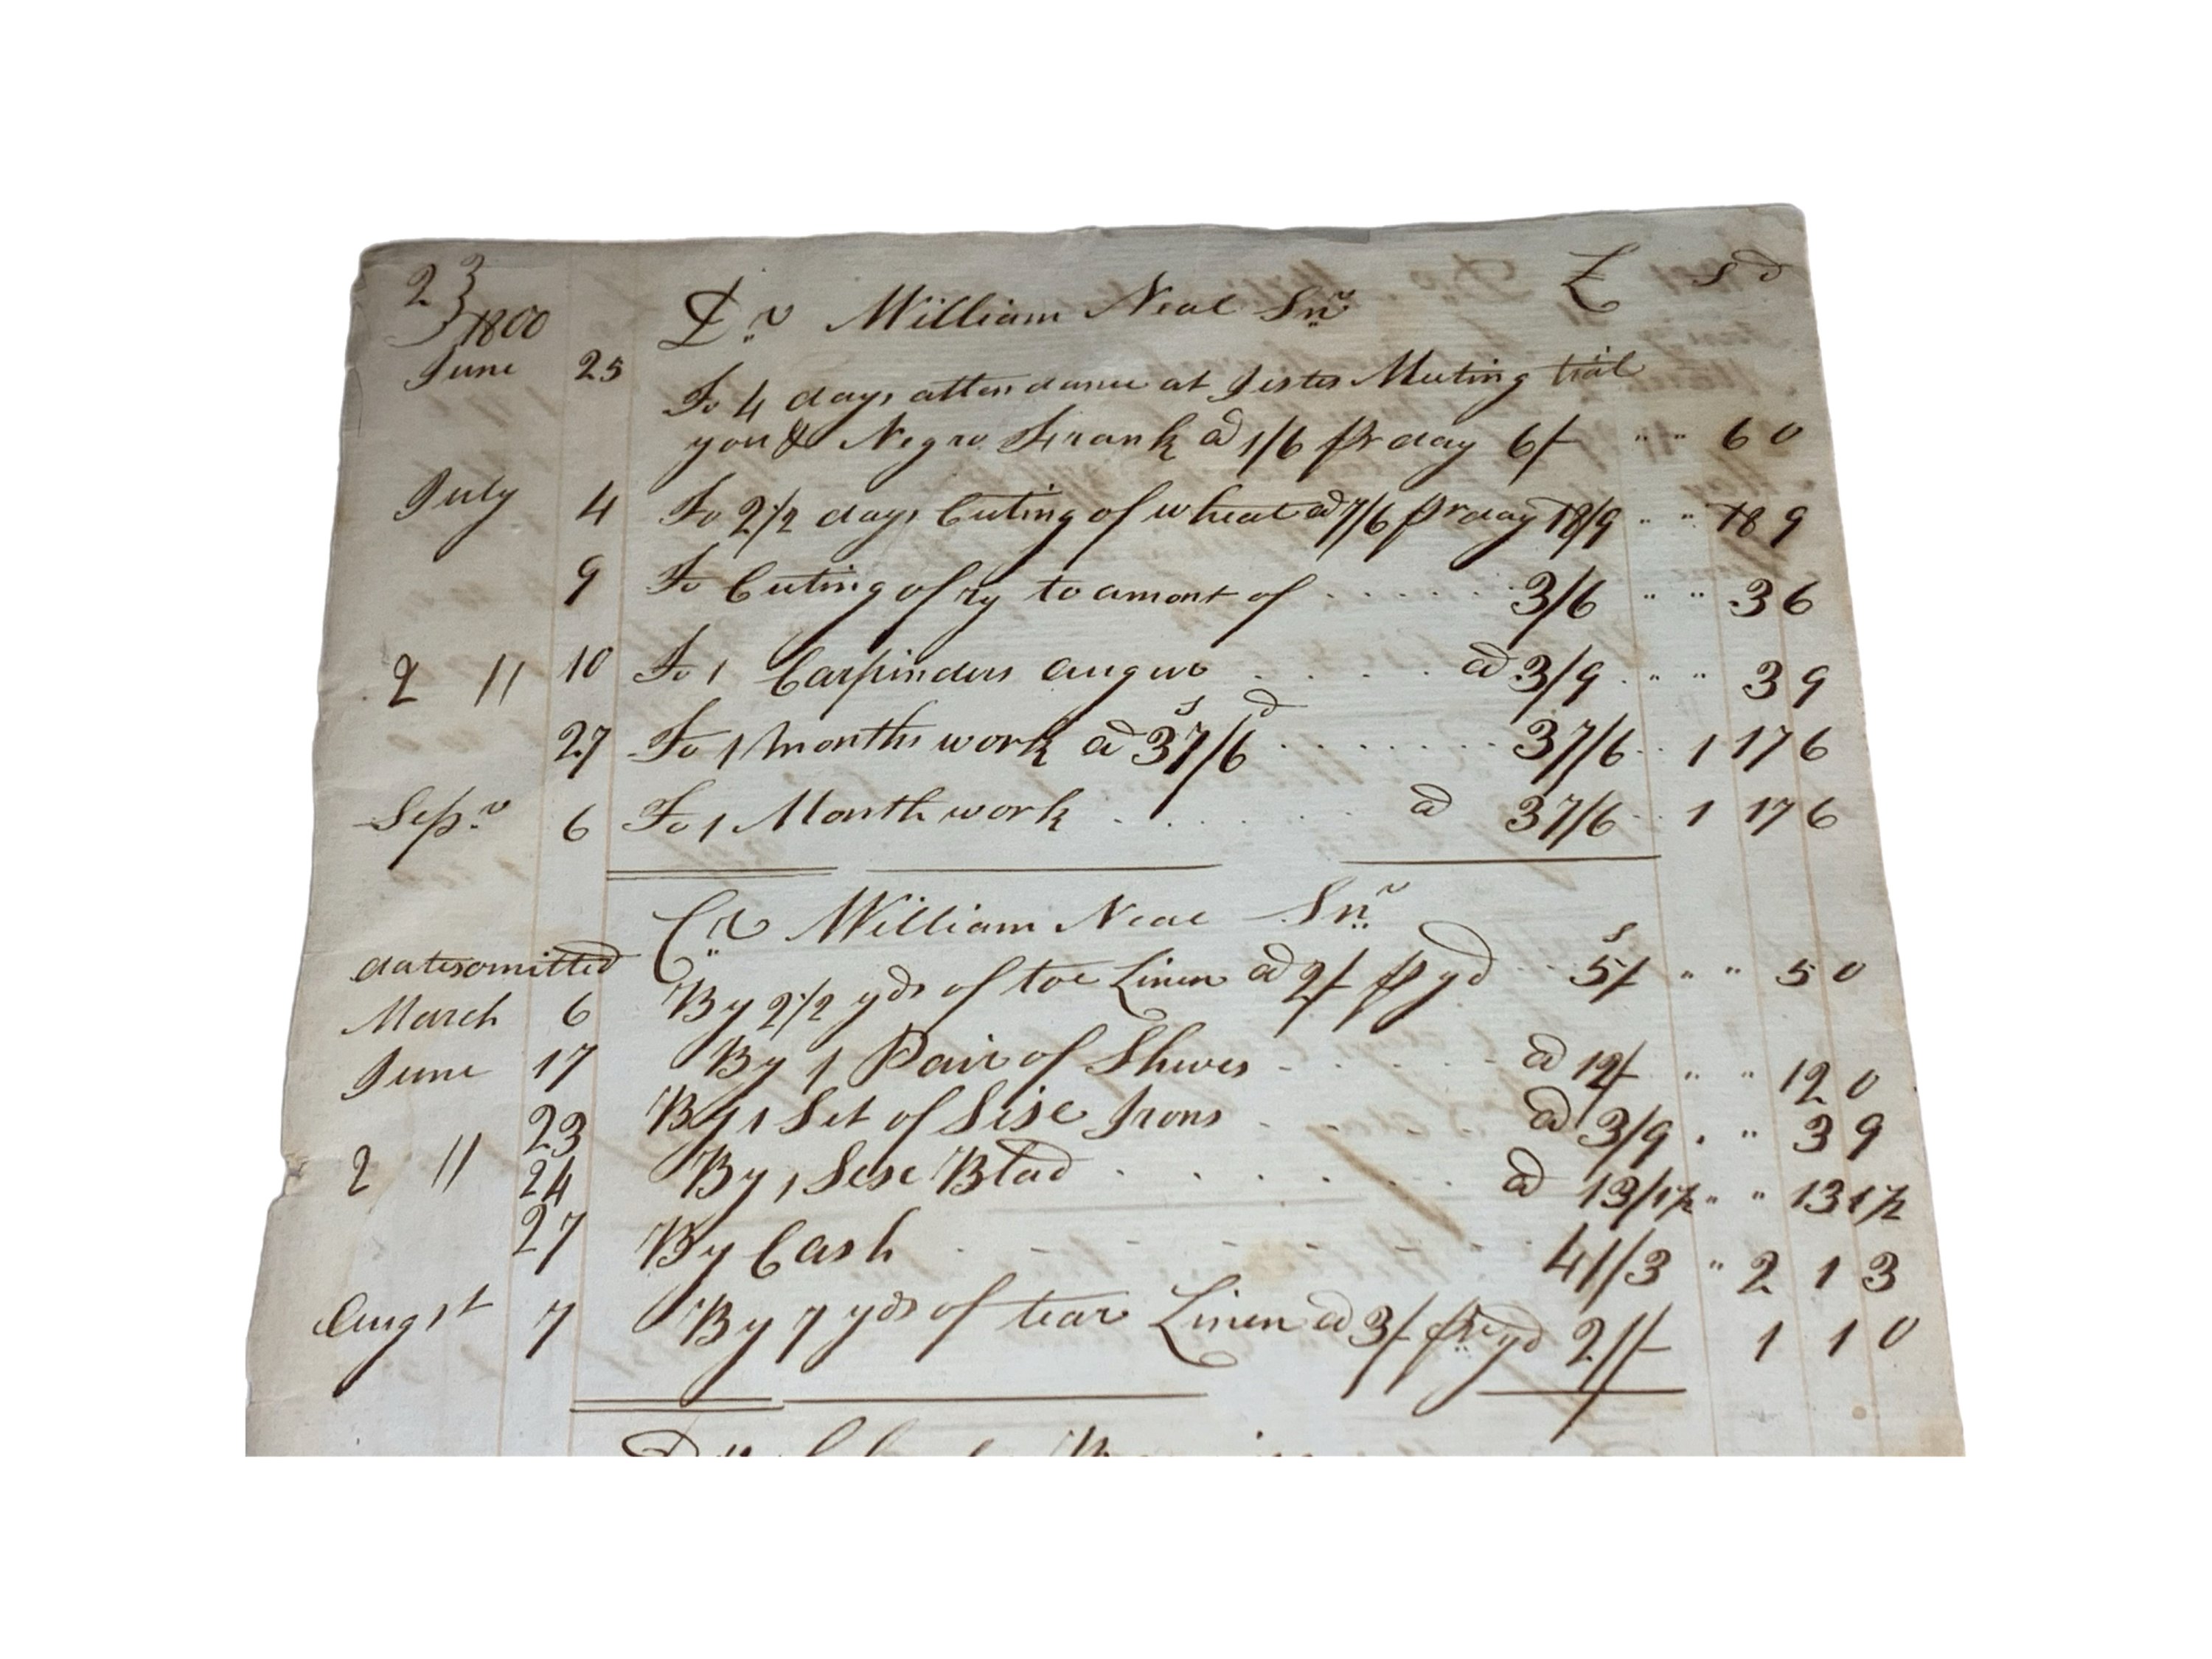 23
1800
Dr William Neal Snr £ s d
June 25 To 4 days attendance at Jestes Meeting trial
you & Negro Frank @ 1/6 pr day 6/- " " 6 0
July 4 To 2 1/2 days Cuting of wheat @ 7/6 pr day 18/9 " " 18 9
9 To Cuting of ry to amont of 3/6 " " 3 6
2 " 10 To 1 Carpinders auguer @ 3/9 " " 3 9
27 To 1 months work @ 37s/6d 37/6 1 17 6
Sepr 6 To 1 Month work @ 37/6 1 17 6
Cr William Neal Snr
dates omitted
March 6 By 2 1/2 yds of toe Linen @ 2/- p yd 5/- s " " 5 0
June 17 By 1 Pair of Shwes @ 12/- " " 12 0
23 By 1 Set of Sise Irons @ 3/9 " " 3 9
2 " 24 By 1 Sese Blad @ 13/1 1/2 " " 13 1 1/2
27 By Cash 41/3 " 2 1 3
Augst 7 By 7 yds of tear Linen @ 3/- pr yd 21/- 1 1 0